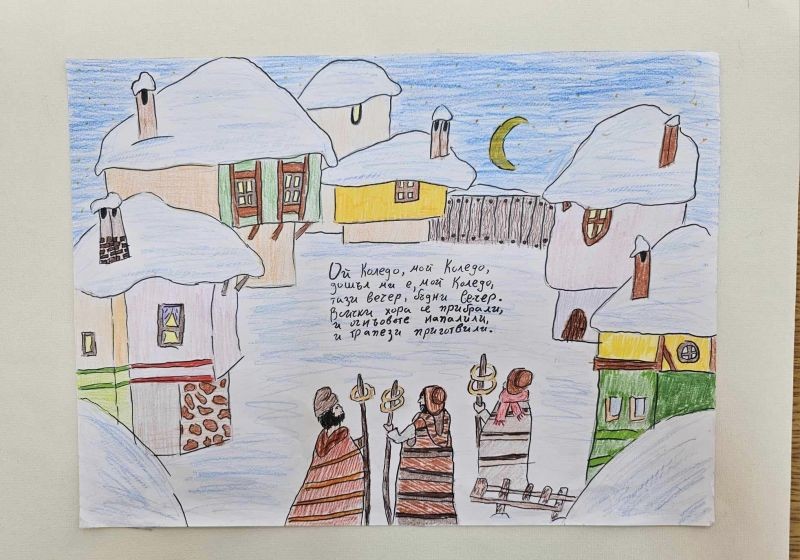 Ой Коледо, мой Коледо,
дошъл ми е, мой Коледо,
тази вечер, бъдни вечер.
Всички хора се прибрали,
и огньовете напалили,
и трапези приготвили.